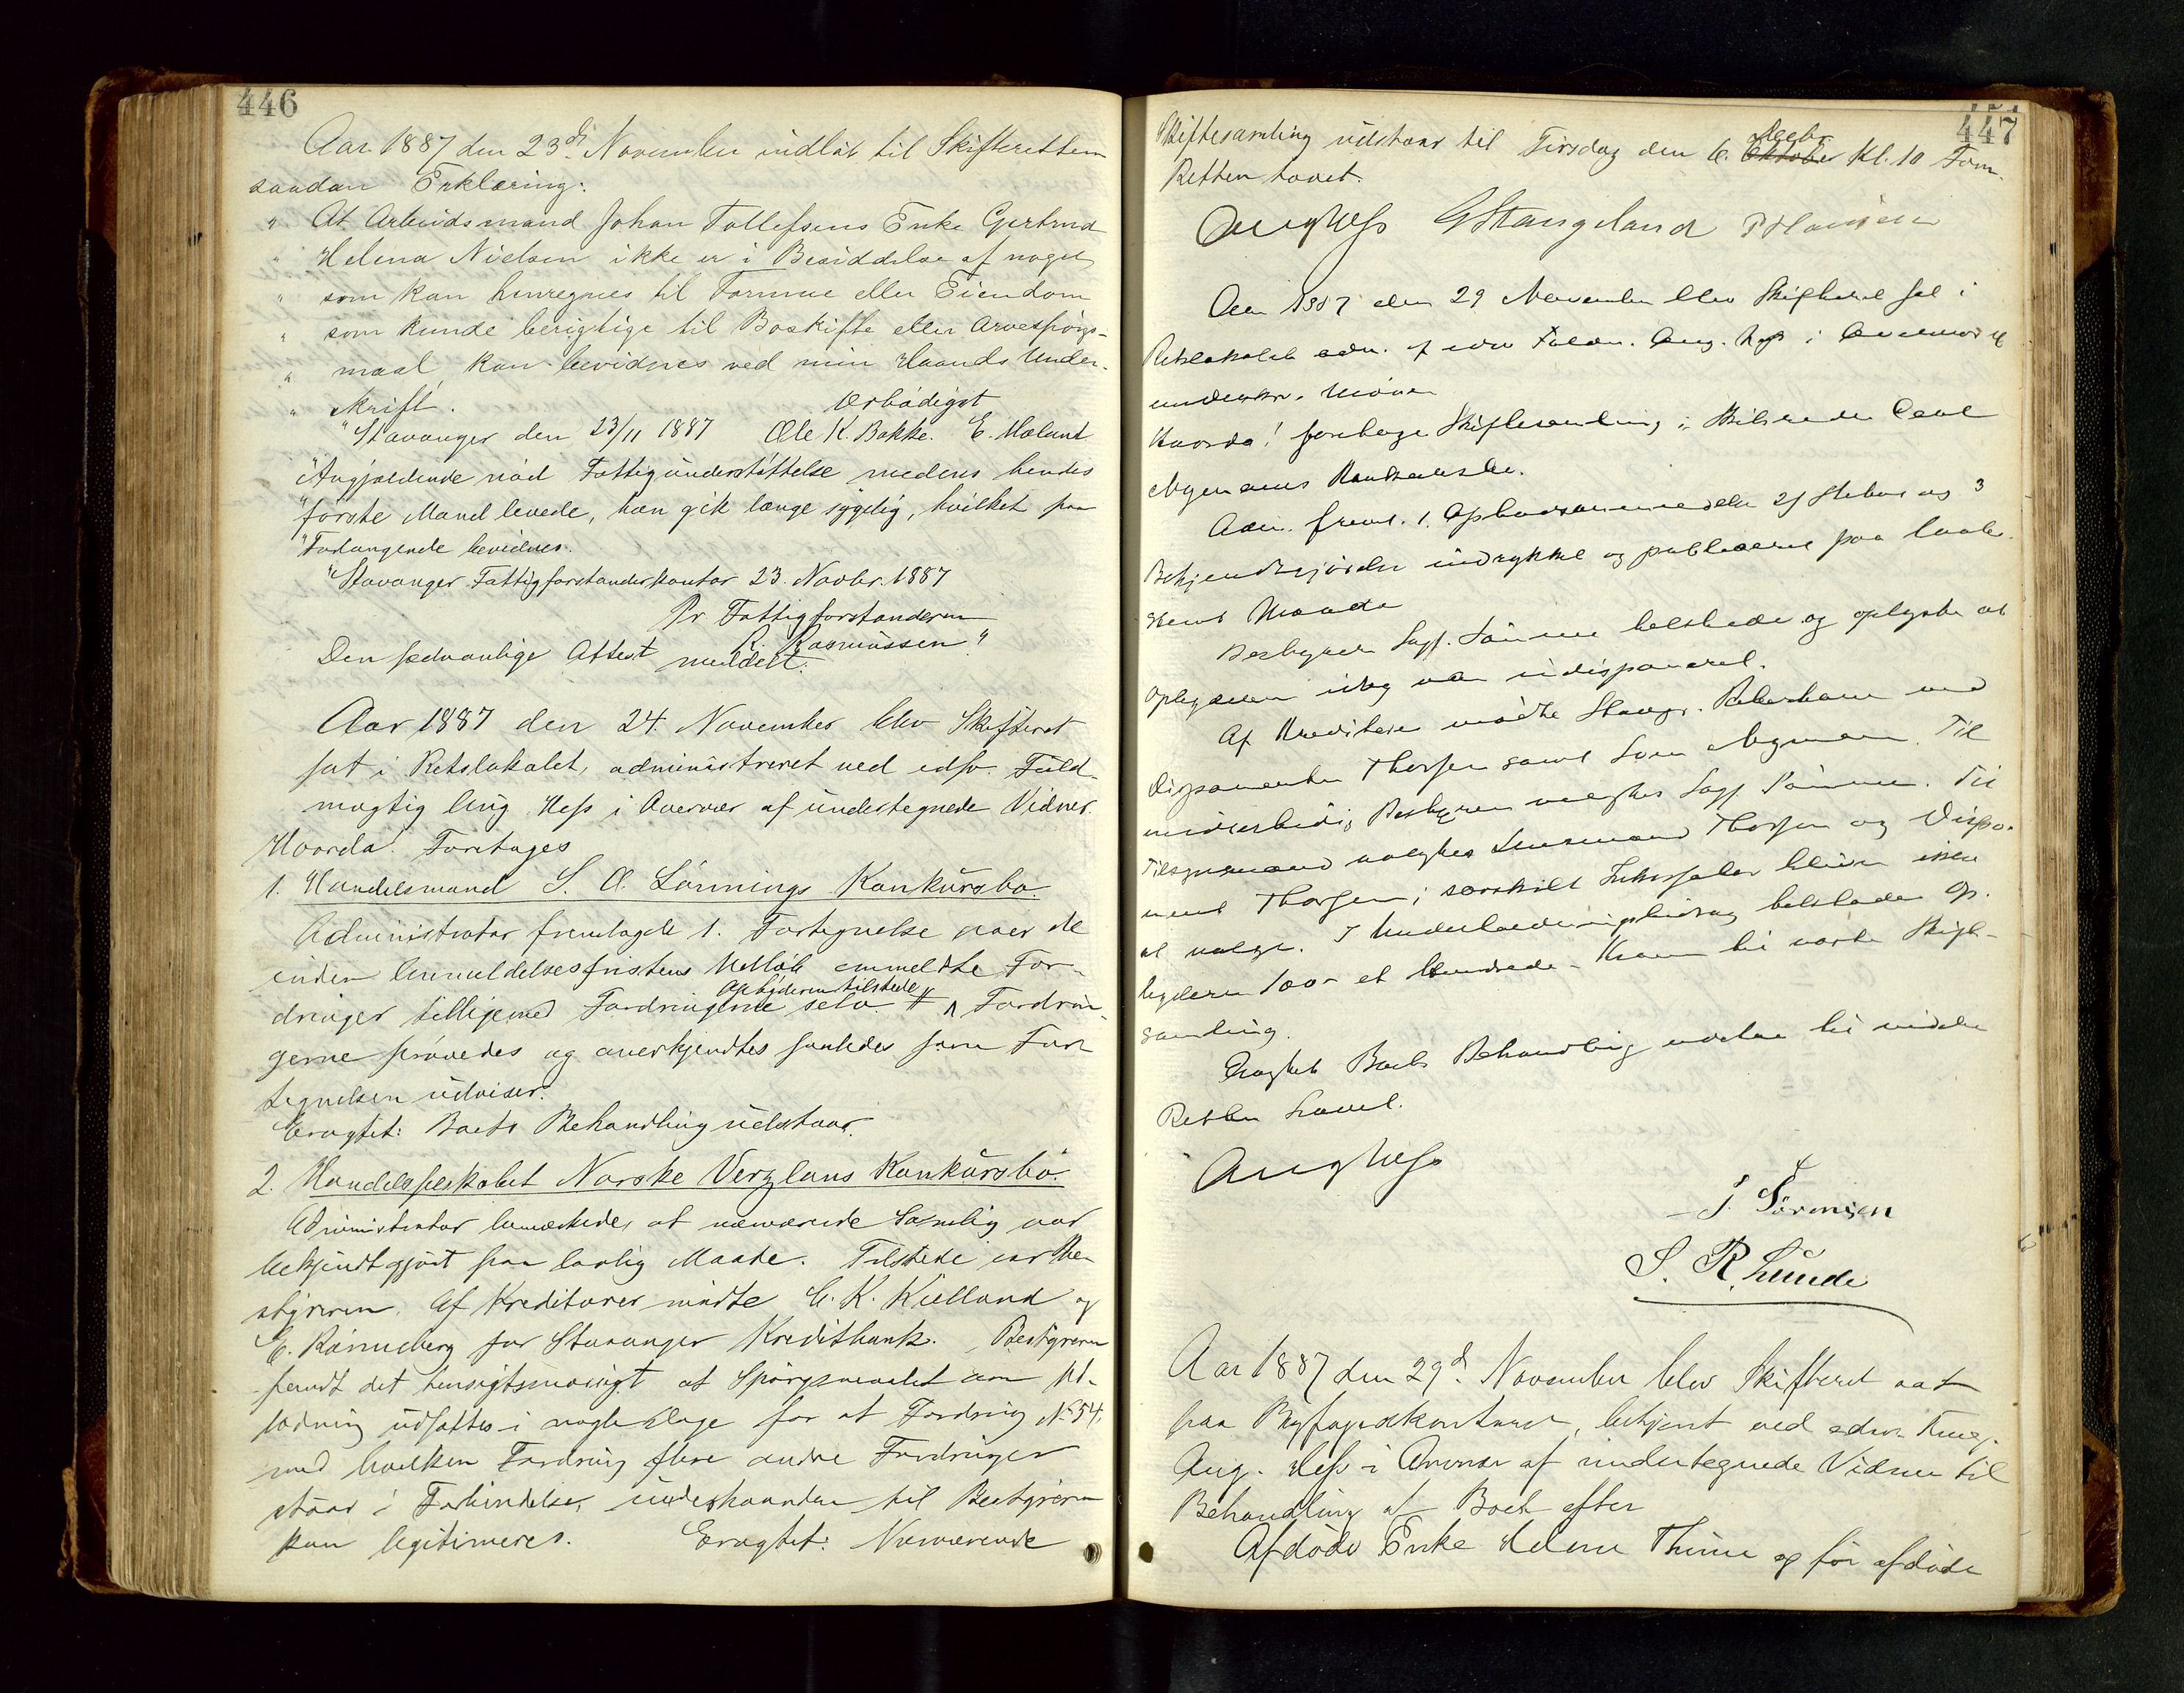 446
Aar 1887 den 23di November indløb til Skifteretten
saadan Erklæring:
" At Arbeidsmand Johan Tollefsens Enke Gertrud
" Helena Nielsen ikke er i Besiddelse af noget
" som kan henregnes til Formue eller Eiendom
" som kunde berigtige til Boskifte eller Arvespörgs-
" maal kan bevidnes ved min Haands Under-
" skrift. Ærbödigst
" Stavanger den 23/11 1887 Ole K. Bakke. E.
" Angjældende nöd Fattigunderstöttelse medens hendes
" förste Mand levede, han gik længe sygelig, hvilket paa
" Forlangende bevidnes.
" Stavanger Fattigforstanderkontor 23. Novbr. 1887
Pr Fattigforstanderen
R. Rasmussen "
Den sædvanlige Attest meddelt.
Aar 1887 den 24. November blev Skifteret
sat i Retslokalet, administreret ved edsv. Fuld-
mægtig Aug. Hess i Overvær af undertegnede Vidner.
Hvorda! Foretages
1. Handelsmand S. A. Lönnings Konkursbo.
Administrator fremlagde 1. Fortegnelse over de
inden Anmeldelsesfristens Udløb anmeldte For-
dringer tilligemed Fordringerne selv. Opbyderen tilstede Fordrin-
gerne prövedes og anerkjendtes saaledes som For-
tegnelsen udviser.
Eragtet: Boets Behandling udstaar.
2. Handelsselskabet Norske Verzlans Konkursbo.
Administrator bemærkede, at nærværende Samling var
bekjendtgjort paa lovlig Maade. Tilstede var Be-
styreren. Af Kreditorer mödte C. K. Kielland og
E. Rönneberg for Stavanger Kreditbank. Bestyreren
fandt det hensigtsmæssigt at Spörgsmaalet om Ud-
lodning udsattes i nogle Dage for at Fordring No 54,
med hvilken Fordring flere andre Fordringer
staar i Forbindelse, underhaanden til Bestyreren
kan legitimeres. Eragtet: Nærværende
447
Skiftesamling udstaar til Tirsdag den 6. Decbr Kl. 10 Form.
Retten hævet.
Aug Hess G Stangeland P Hansen
Aar 1887 den 29 November blev Skifteret sat i
Retslokalet adm. af edsv Fuldm. Aug. Hess i Overvær af
underskr. Vidner
Hvorda! foretages Skiftesamling i
Nymans Konkursbo.
Adm. freml. 1. 2/ Stevne og 3
Bekjendtgjörelser indrykket og publiceret paa lovbe-
stemt Maade
Bestyrer Sagf. Sömme tilstede og oplyste at
Opbyderen idag var indisponeret.
Af Kreditorer mödte Stavgr. ved
Disponenten Thorsen samt Tom Nyman. Til
midlertidig Bestyrer valgtes Sagf. Sömme. Til
Tilsynsmænd valgtes Thorsen og Dispo-
nent Thorsen; særskilt bliver ikke
at vælge. I Underholdningsbidrag tilstodes Op-
byderen 100 - et Hundrede - Kroner til næste Skifte-
samling.
Eragtet Boets Behandling udstaar til videre
Retten hævet.
Aug Hess
J. Sörensen
S. R. Lunde
Aar 1887 den 29d. November blev Skifteret sat
paa Byfogedkontoret, betjent ved edsv. Fuldm.
Aug. Hess i Overvær af undertegnede Vidner til
Behandling af Boet efter
Afdöde Enke Helene Thime og för afdöde